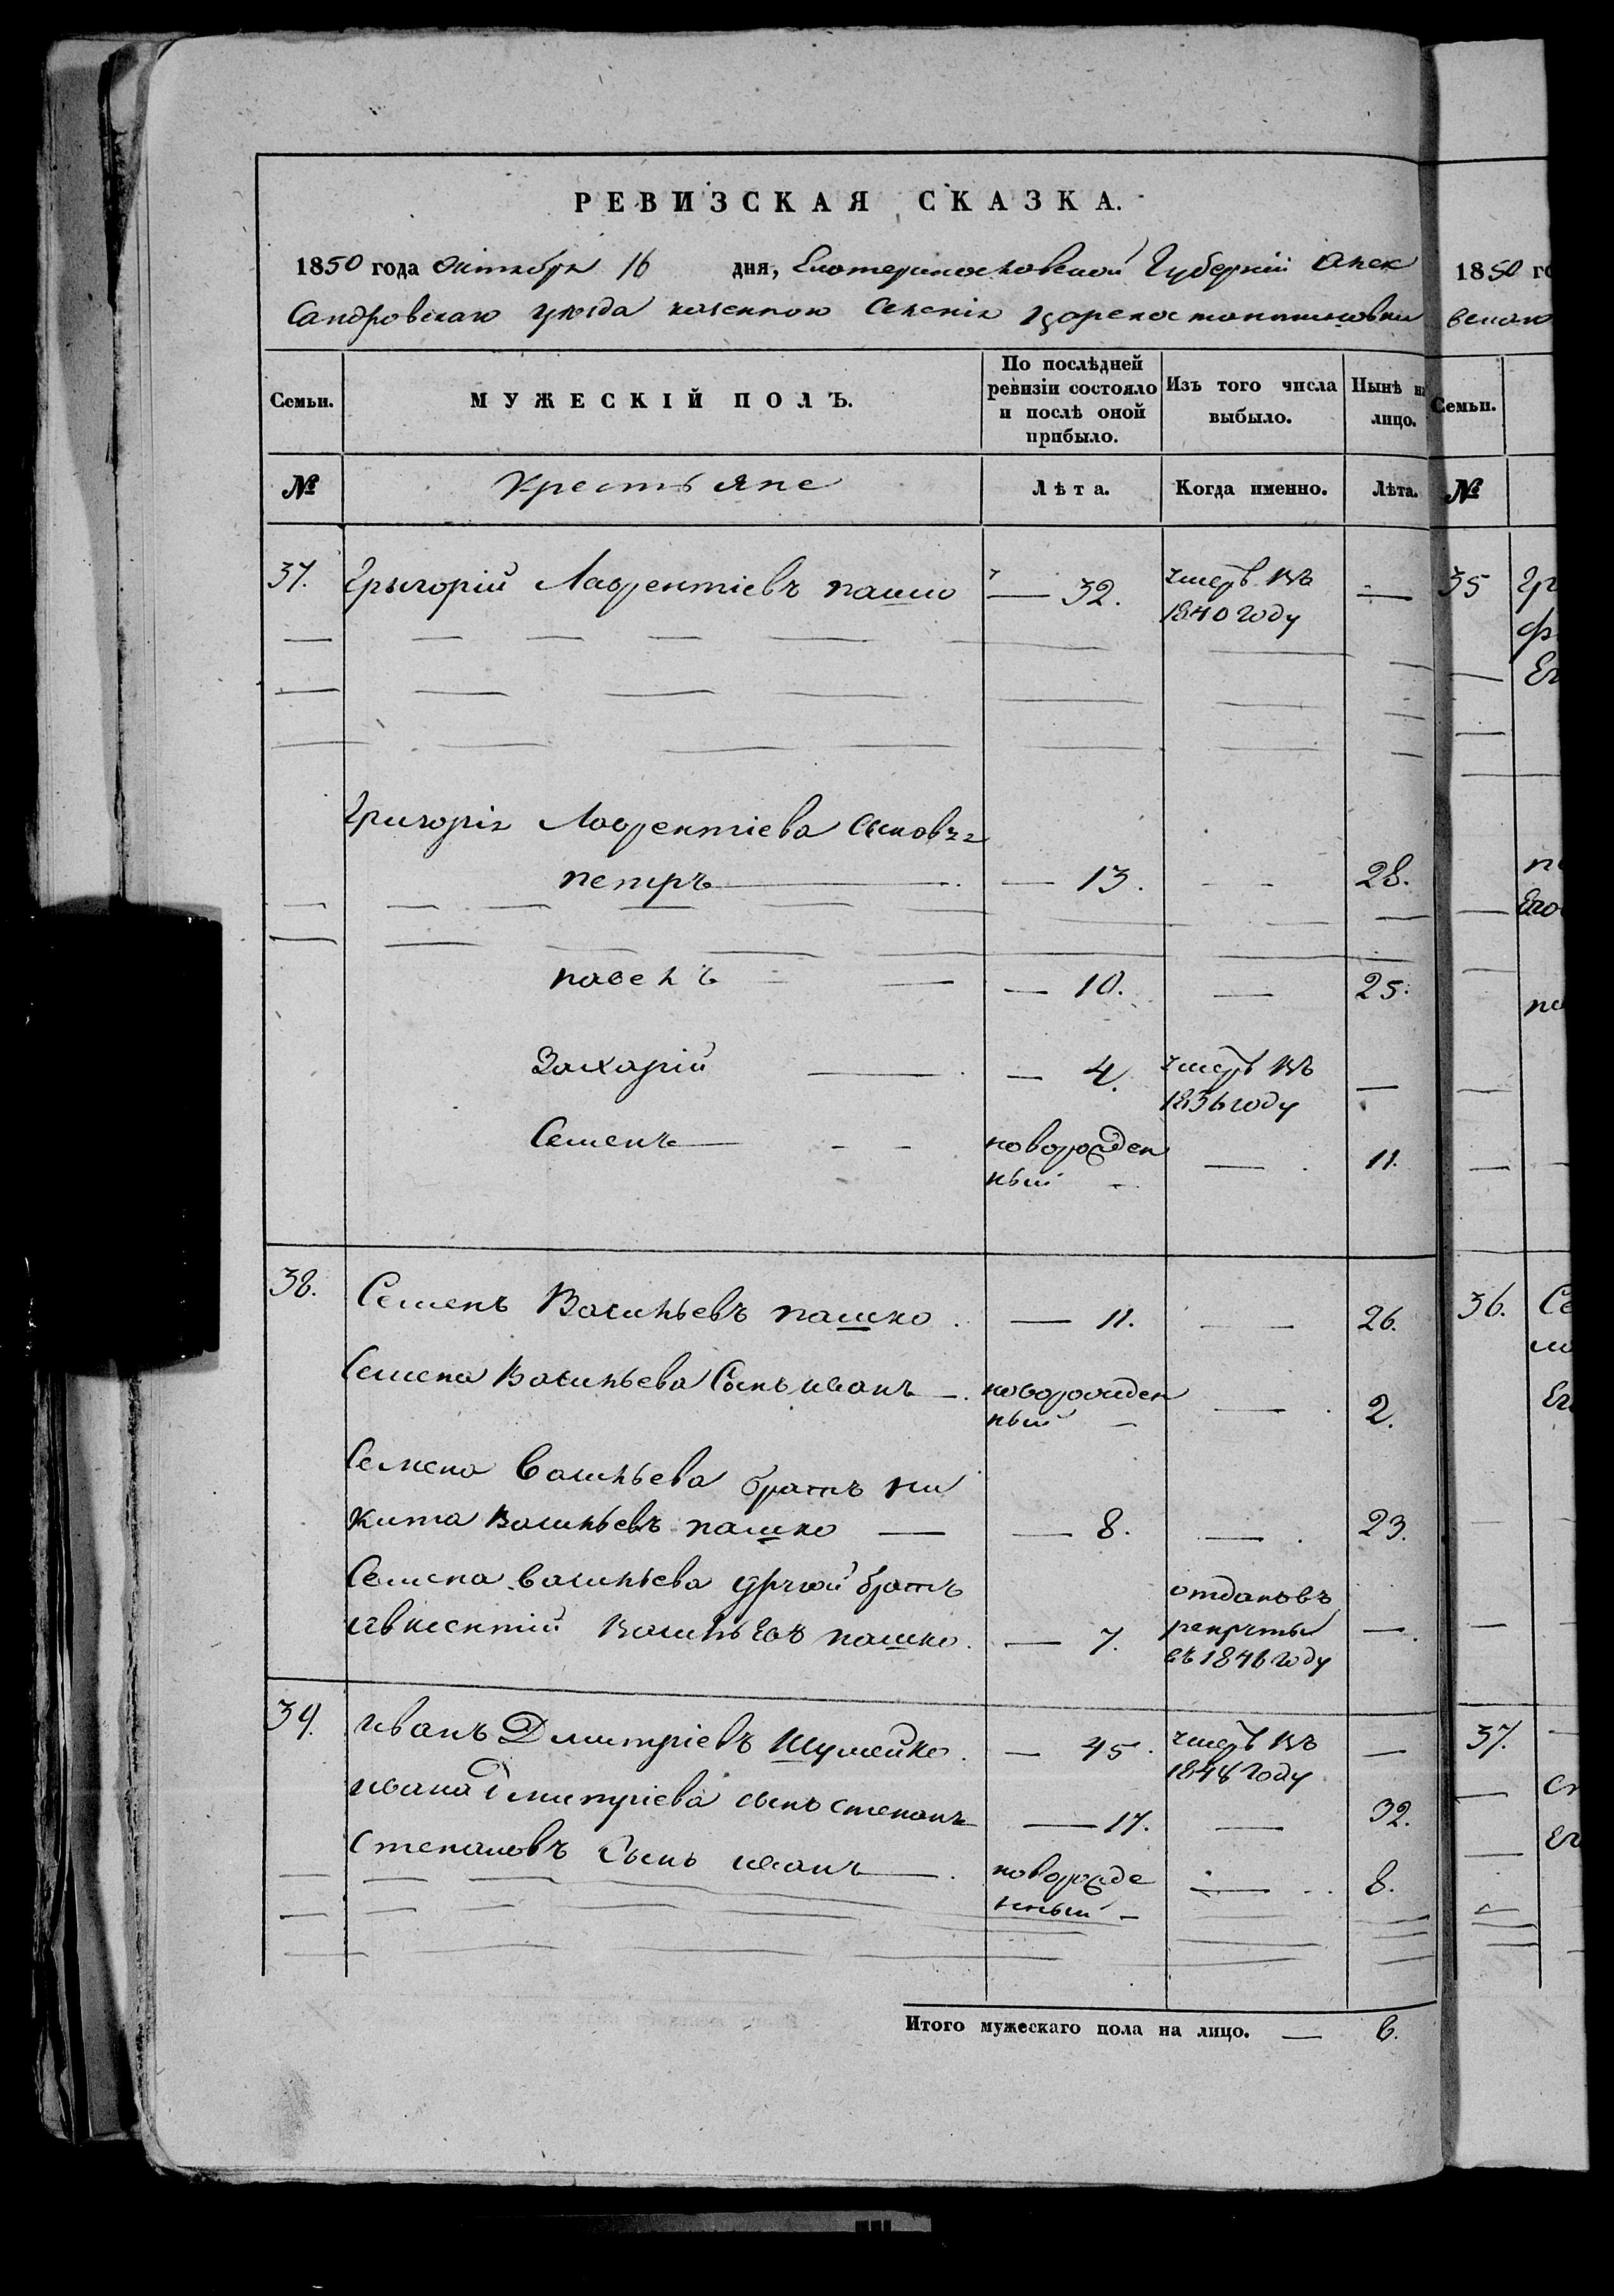 РЕВИЗСКАЯ СКАЗКА.
1850 года Октября 16 дня, Екатеринославской Губерніи Алек
сандровскаго уезда казенного Селенія Цареконстантиновки
Семьи. МУЖЕСКІЙ ПОЛЪ. По послѣдней ревизіи состояло и послѣ оной прибыло. Изъ того числа выбыло. Нынѣ на лицо.
№ Крестьяне Лѣта. Когда именно. Лѣта.
37. Грыгорій Лаврентіевъ пашко — 32. умеръ въ 1840 году —
Григорія Лаврентіева Сыновья
петръ — 13. — 28.
павелъ — 10. — 25.
Захарій — 4. умеръ въ 1836 году —
Семенъ — новорожден ный — 11.
38. Семенъ Васильевъ пашко. — 11. — 26.
Семена Васильева Сынъ иванъ — новорожден ный — 2.
Семена Васильева братъ ни
кита Васильевъ пашко — 8. — 23.
Семена Васильева другой братъ
Васильевъ пашко. — 7. отданъ въ рекруты въ 1846 году —
39. иванъ Дмитріевъ Шумейко. — 45. умеръ въ 1848 году —
ивана Дмитріева сынъ степанъ — 17. — 32.
Степановъ Сынъ иванъ — новорожде нный — 8.
Итого мужескаго пола на лицо. — 6.
1850 го
Семьи.
№
35
36.
37.